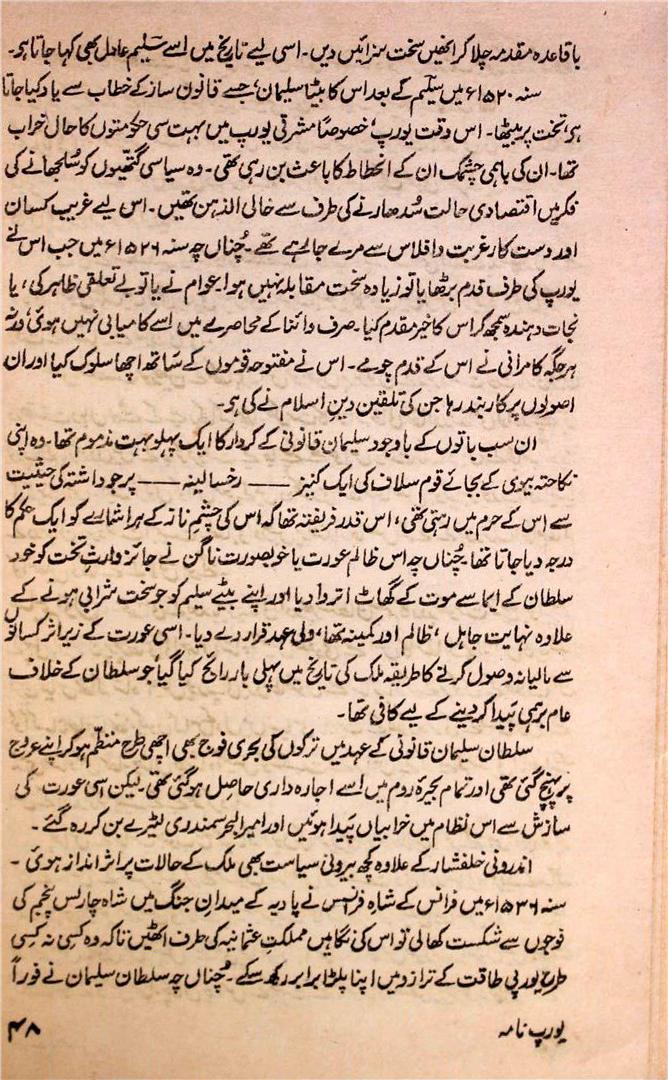 باقاعدہ مقدمہ چلا کر انھیں سخت سزائیں دیں۔ اسی لیے تاریخ میں اسے سلیم عادل بھی کہا جاتا ہے۔
سنہ ۱۵۲۰ء میں سلیم کے بعد اس کا بیٹا سلیمان، جسے قانون ساز کے خطاب سے یاد کیا جاتا
ہے، تخت پر بیٹھا۔ اس وقت یورپ، خصوصاً مشرقی یورپ میں بہت سی حکومتوں کا حال خراب
تھا۔ ان کی باہمی چشمک ان کے انحطاط کا باعث بن رہی تھی۔ وہ سیاسی گتھیوں کو سلجھانے کی
فکر میں اقتصادی حالت سُدھارنے کی طرف سے خالی الذہن تھیں۔ اس لیے غریب کسان
اور دست کار غربت و افلاس سے مرے جا رہے تھے۔ چُناں چہ سنہ ۱۵۲۶ء میں جب اس نے
یورپ کی طرف قدم بڑھایا تو زیادہ سخت مقابلہ نہیں ہوا۔ عوام نے یا تو بے تعلقی ظاہر کی، یا
نجات دہندہ سمجھ کر اس کا خیر مقدم کیا۔ صرف وائنا کے محاصرے میں اسے کامیابی نہیں ہوئی ورنہ
ہر جگہ کامرانی نے اس کے قدم چومے۔ اس نے مفتوحہ قوموں کے ساتھ اچھا سلوک کیا اور ان
اصولوں پر کاربند رہا جن کی تلقین دینِ اسلام نے کی ہے۔
ان سب باتوں کے باوجود سلیمان قانونی کے کردار کا ایک پہلو بہت مذموم تھا۔ وہ اپنی
نکاحتہ بیوی کے بجائے قوم سلاف کی ایک کنیز —— رخسالینہ —— پر جو داشتہ کی حیثیت
سے اس کے حرم میں رہتی تھی، اس قدر فریفتہ تھا کہ اس کی چشمِ ناز کے ہر اشارے کو ایک حکم کا
درجہ دیا جاتا تھا۔ چُناں چہ اس ظالم عورت یا خوبصورت ناگن نے جائز وارثِ تخت کو خود
سلطان کے ایما سے موت کے گھاٹ اتروا دیا اور اپنے بیٹے سلیم کو جو سخت شرابی ہونے کے
علاوہ نہایت جاہل، ظالم اور کمینہ تھا، ولی عہد قرار دے دیا۔ اسی عورت کے زیرِ اثر کسانوں
سے مالیانہ وصول کرنے کا طریقہ ملک کی تاریخ میں پہلی بار رائج کیا گیا، جو سلطان کے خلاف
عام برہمی پیدا کر دینے کے لیے کافی تھا۔
سلطان سلیمان قانونی کے عہد میں ترکوں کی بحری فوج بھی اچھی طرح منظم ہو کر اپنے عروج
پر پہنچ گئی تھی اور تمام بحیرۂ روم میں اسے اجارہ داری حاصل ہو گئی تھی۔ لیکن اسی عورت کی
سازش سے اس نظام میں خرابیاں پیدا ہوئیں اور امیر البحر سمندری لٹیرے بن کر رہ گئے۔
اندرونی خلفشار کے علاوہ کچھ بیرونی سیاست بھی ملک کے حالات پر اثر انداز ہوئی۔
سنہ ۱۵۳۶ء میں فرانس کے شاہ فرانسس نے پادیہ کے میدانِ جنگ میں شاہ چارلس پنجم کی
فوجوں سے شکست کھالی تو اس کی نگاہیں مملکتِ عثمانیہ کی طرف اٹھیں تاکہ وہ کسی نہ کسی
طرح یورپی طاقت کے ترازو میں اپنا پلڑا برابر رکھ سکے۔ چُناں چہ سلطان سلیمان نے فوراً
یورپ نامہ
۴۸